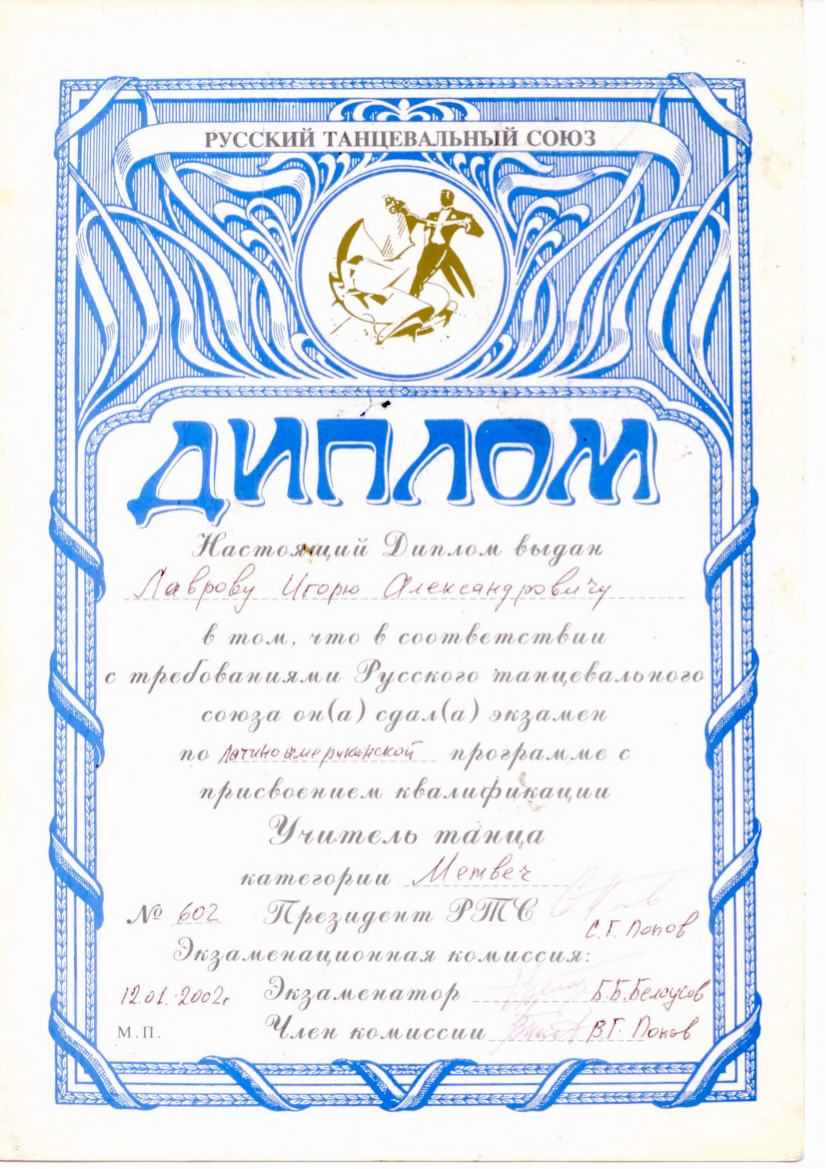 РУССКИЙ ТАНЦЕВАЛЬНЫЙ СОЮЗ
ДИПЛОМ
Настоящий Диплом выдан
Лаврову Игорю Александровичу
в том, что в соответствии
с требованиями Русского танцевального
союза он(а) сдал(а) экзамен
по латиноамериканской программе с
присвоением квалификации
Учитель танца
категории
№ 602 Президент РТС С.Г. Попов
Экзаменационная комиссия:
12.01.2002г Экзаменатор Б.Б.Белоусов
М.П. Член комиссии В.Г. Попов